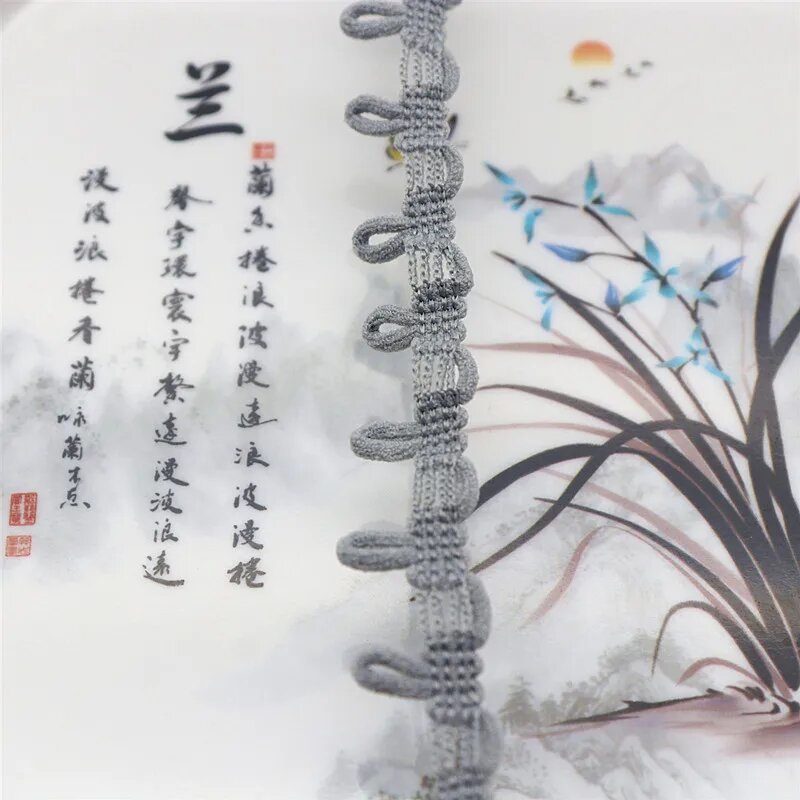 兰
蘭香捲浪波漫遠浪波漫捲
馨宇環寰宇馨遠漫波浪遠
漫波浪捲香蘭
咏蘭